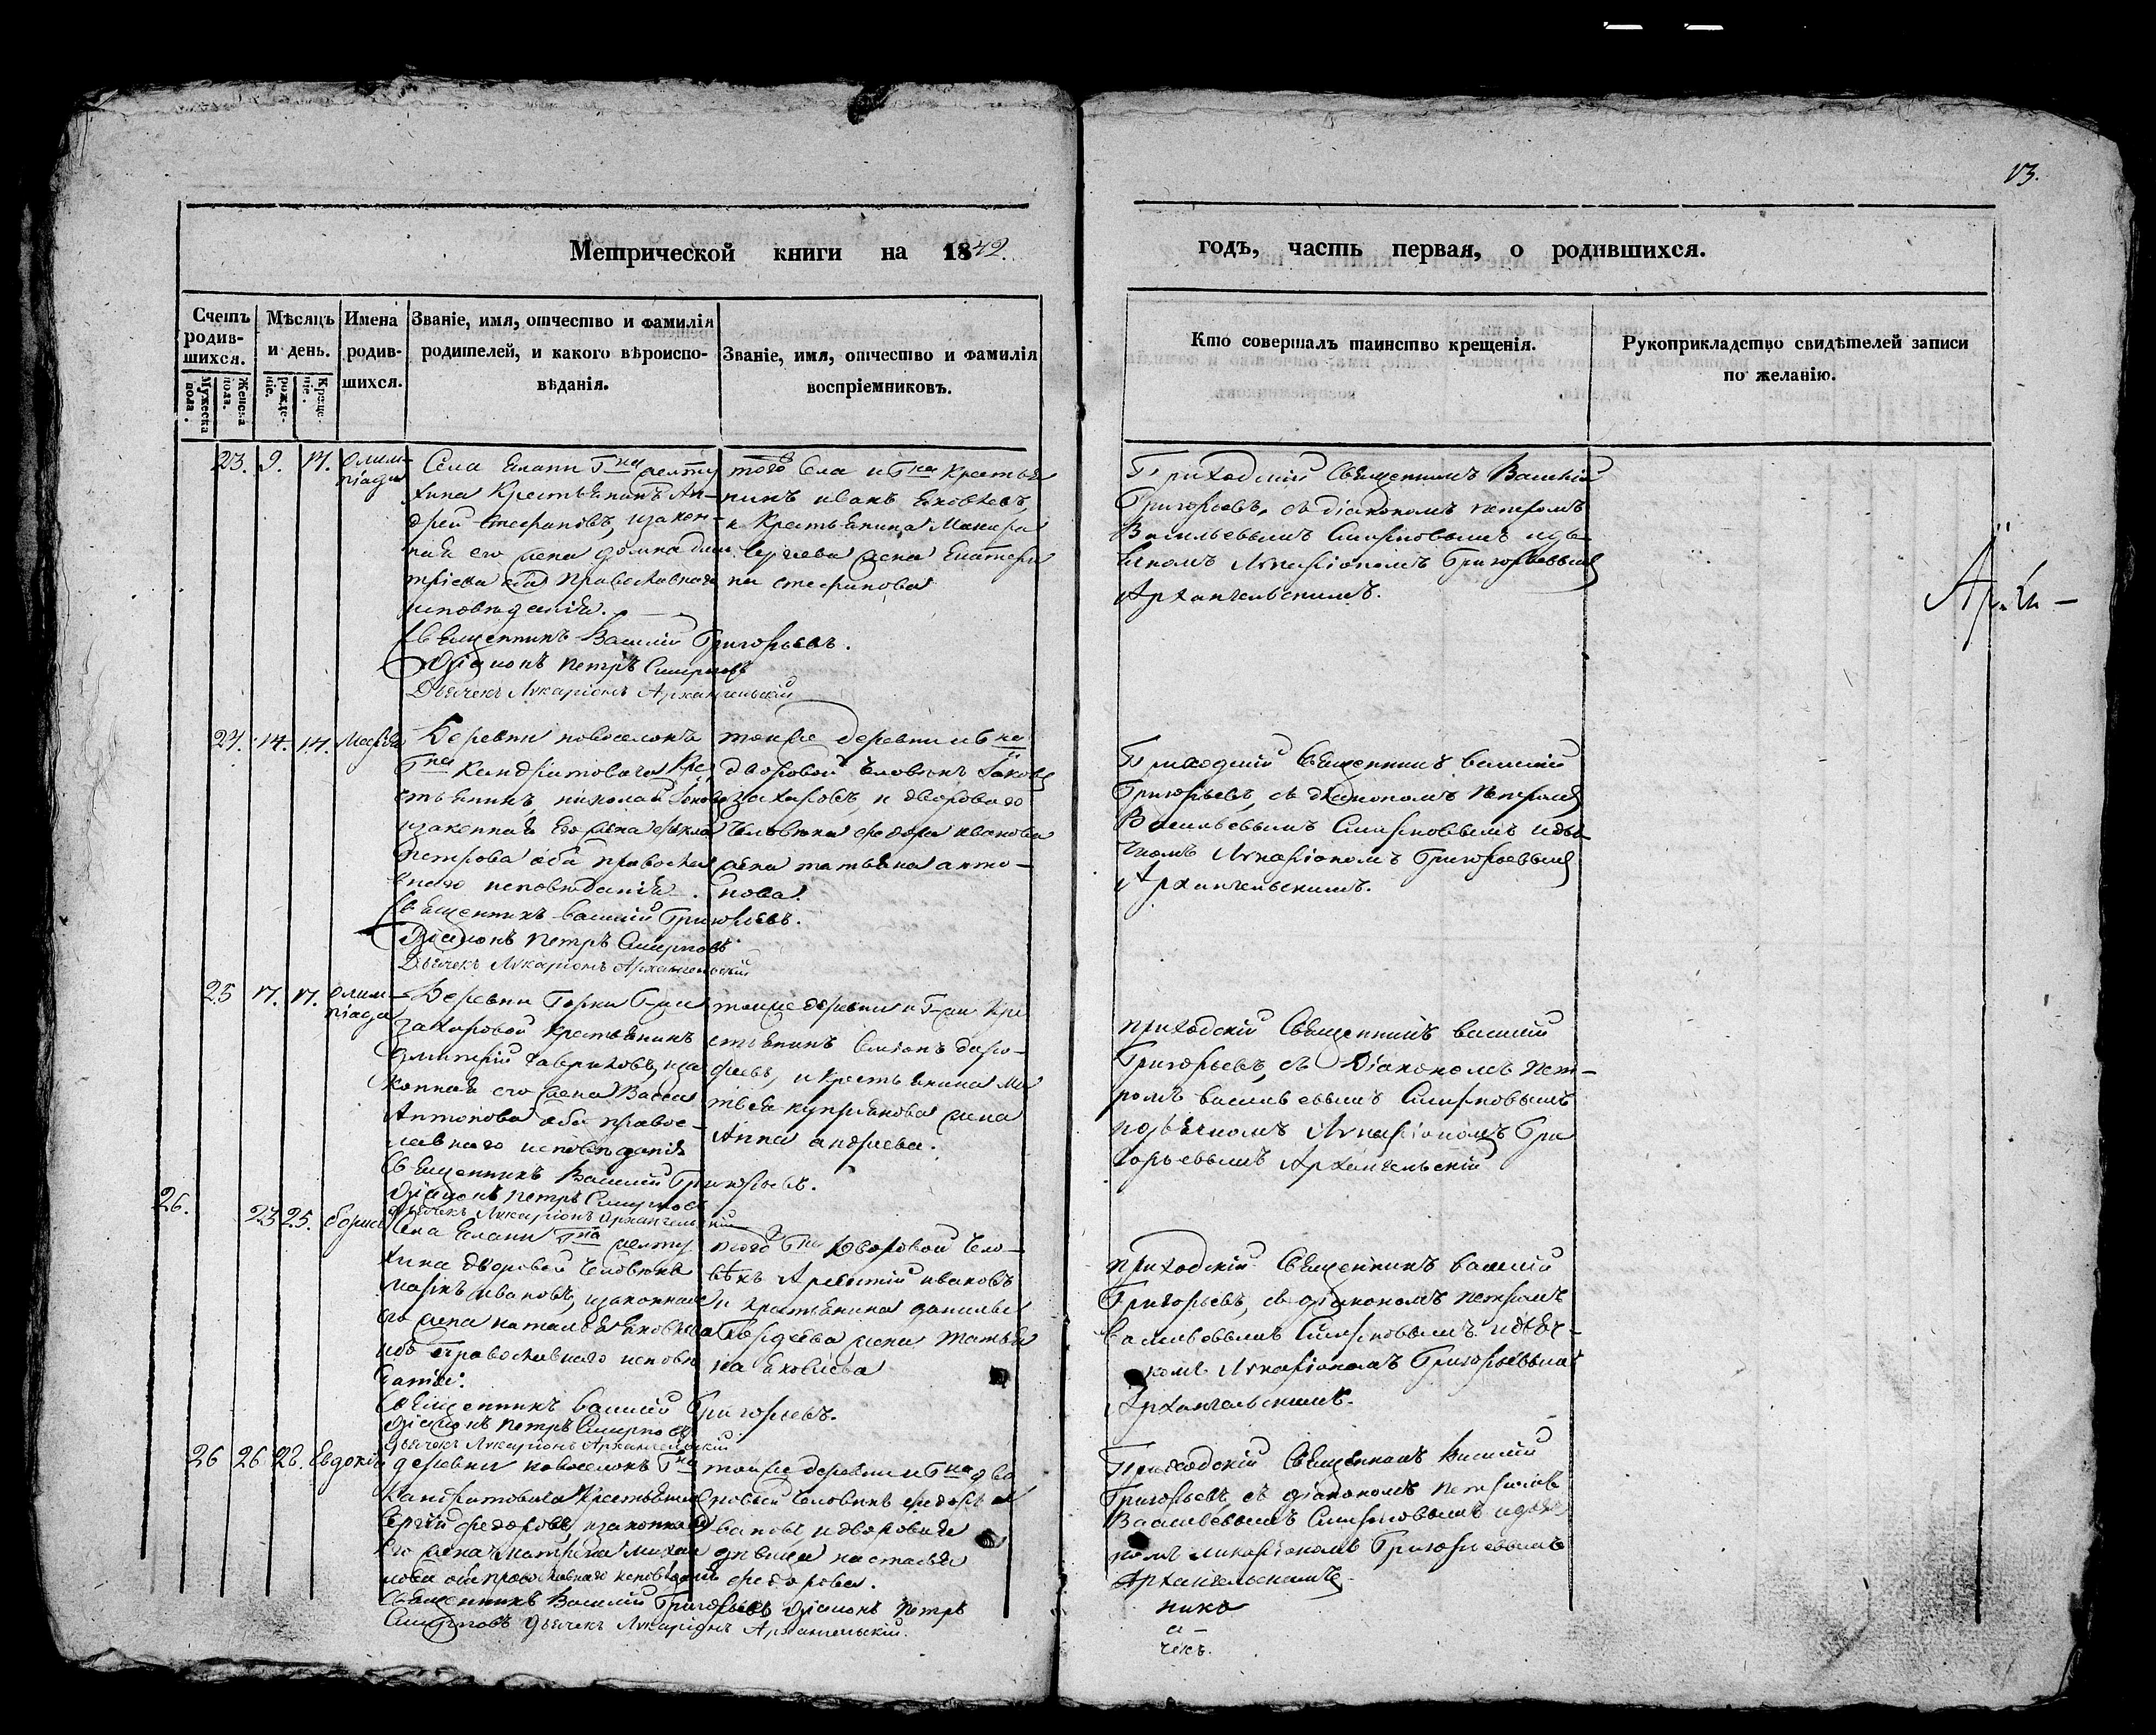 13.
Метрической книги на 1842.
годъ, часть первая, о родившихся.
Счетъ родив-шихся.
Мужеска пола.
Женска пола.
Мѣсяцъ и день.
рожде-ніе.
Креще-ніе.
Имена родив-шихся.
Званіе, имя, отчество и фамилія
родителей, и какого вѣроиспо-
вѣданія.
Званіе, имя, отчество и фамилія
воспріемниковъ.
Кто совершалъ таинство крещенія.
Рукоприкладство свидѣтелей записи
по желанію.
23. 9. 14. Олим-
піада
Села Елани Гна Желту
хина Крестьянинъ Ан-
дрей Стефановъ, изакон-
ная его жена домна дми
тріева оба Православнаго
исповѣданія.
Священникъ Василій Григорьевъ.
Діаконъ Петръ Смирновъ
Дьячекъ Лукаріонъ Архангельскій
того Села и Гна Крестья
нинъ иванъ Яковлевъ,
и Крестьянина
Сергѣева жена Екатери
на стефанова
Приходскій Священникъ Василій
Григорьевъ, съ діакономъ петромъ
Васильевымъ Смирновымъ идья
чкомъ Лукаріономъ Григорьевымъ
Архангельскимъ.
24. 14. 14.
Деревни новоселокъ
Гна Кандратовича Кре
стьянинъ, николай
изаконная Его жена фекла
Петрова оба православ
наго исповѣданія.
Священникъ Василій Григорьевъ.
Діаконъ Петръ Смирновъ
Дьячекъ Лукаріонъ Архангельскій
тойже деревни и Гна
дворовой Человѣкъ Іаковъ
захаровъ, и двороваго
Человѣка федора иванова
жена татьяна анто-
нова.
Приходскій Священникъ Василій
Григорьевъ, съ діакономъ Петромъ
Васильевымъ Смирновымъ идья
чкомъ Лукаріономъ Григорьевымъ
Архангельскимъ.
25 17. 17. Олим-
піада
Деревни Горки Г-жи
Захаровой Крестьянинъ
Дмитрій Гавриловъ, иза
конная его жена Васса
Антонова оба правос-
лавнаго исповѣданія
Священникъ Василій Григорьевъ.
Діаконъ Петръ Смирновъ
Дьячекъ Лукаріонъ Архангельскій
тойже деревни и Г-жи Кре
стьянинъ Симіонъ доро-
феевъ, и Крестьянина Ма
твѣя купріянова жена
Анна андреева.
приходскій Священникъ василій
Григорьевъ, съ Діакономъ Пет-
ромъ васильевымъ Смирновымъ
идьячкомъ Лукаріономъ Гри
горьевымъ Архангельскій
26. 23 25. Борисъ
Села Елани Гна Желту
хина дворовой Человѣкъ
Маркъ ивановъ, изаконная
его жена наталья Яковлева
оба Православнаго исповѣ
данія.
Священникъ Василій Григорьевъ.
Діаконъ Петръ Смирновъ
Дьячекъ Лукаріонъ Архангельскій
тогоже Гна Дворовой Чело-
вѣкъ ивановъ
и Крестьянина данилы
Гордѣева жена Татья
на Яковлева
приходскій Священникъ василій
Григорьевъ, съ діакономъ петромъ
васильевымъ Смирновымъ идьяч-
комъ Лукаріономъ Григорьевымъ
Архангельскимъ.
26 26 28. Евдокія
деревни новоселокъ Гна
Кандратовича Крестьянинъ
Сергій федоровъ, изаконная
Его жена Матрона Михаи
лова оба православнаго исповѣданія
Священникъ Василій Григорьевъ Діаконъ Петръ
Смирновъ Дьячекъ Лукаріонъ Архангельскій.
тойже деревни и Гна дво
ровый Человѣкъ федоръ и
вановъ, и дворовая
дѣвица настасья
федорова.
Приходскій Священникъ Василій
Григорьевъ, съ діакономъ Петромъ
Васильевымъ Смирновымъ идьяч
комъ Лукаріономъ Григорьевымъ
Архангельскимъ